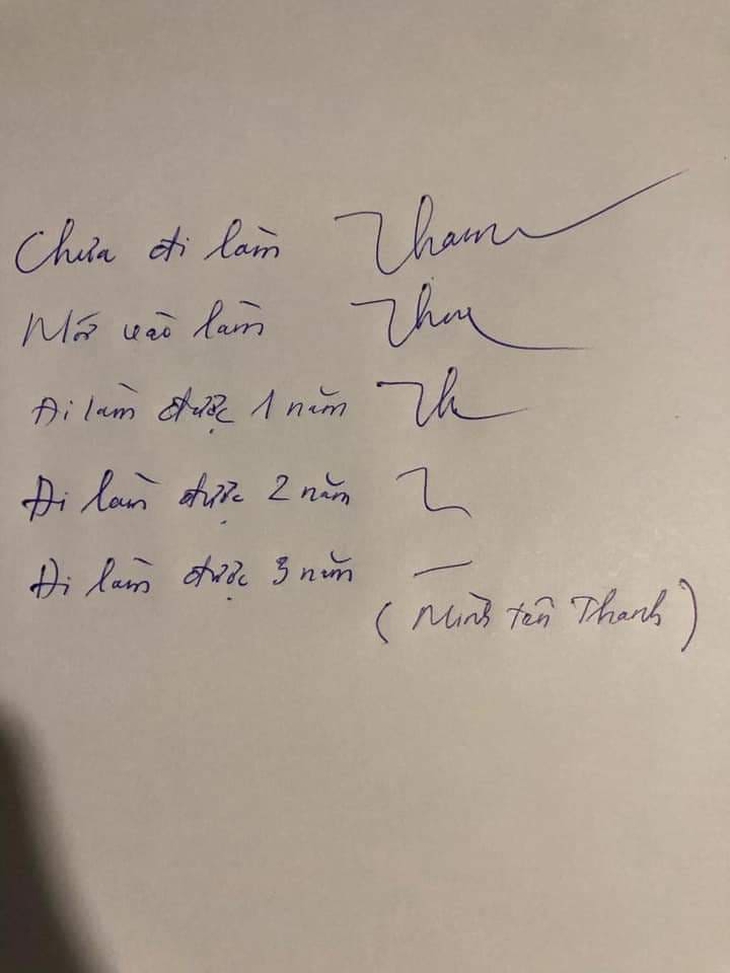 Chưa đi làm Thanh
Mới vào làm Tha
Đi làm được 1 năm Th
Đi làm được 2 năm
Đi làm được 3 năm
(Mình tên Thanh)